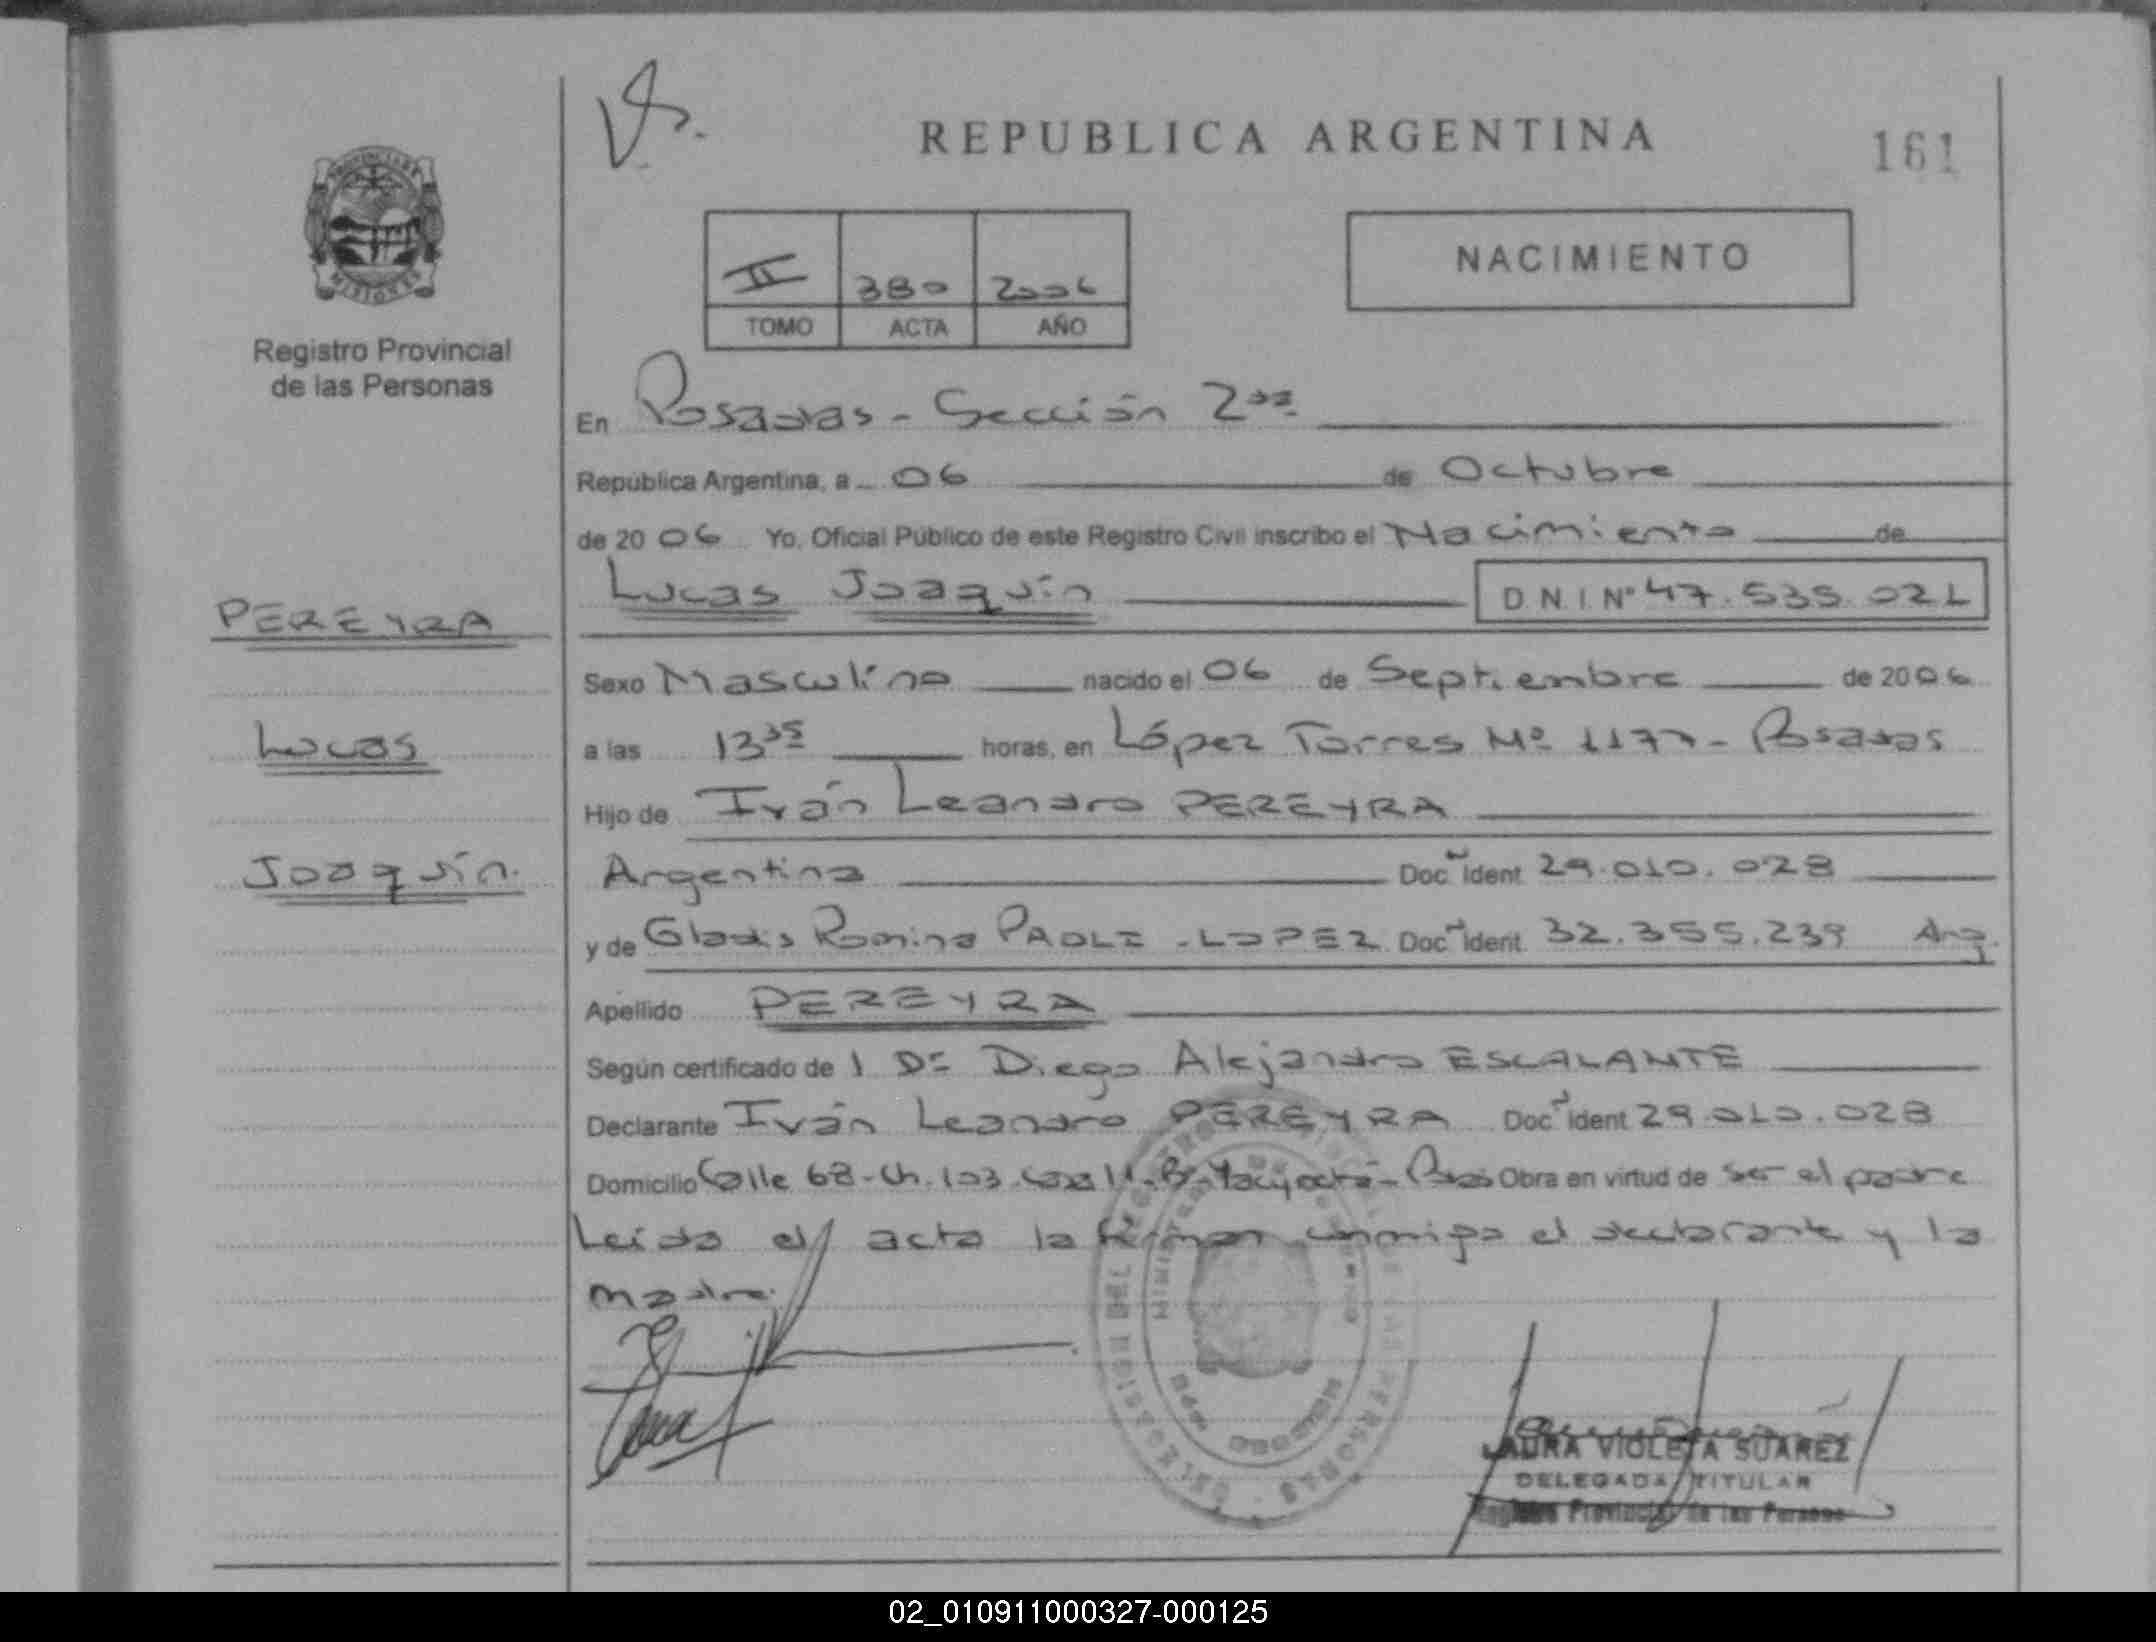 REPUBLICA ARGENTINA
161
PROVINCIA DE
MISIONES
Registro Provincial
de las Personas
II 380 2006
TOMO ACTA AÑO
NACIMIENTO
En Posadas - Sección 2da
República Argentina, a 06 de Octubre
de 2006 Yo, Oficial Público de este Registro Civil inscribo el Nacimiento de
Lucas Joaquín D.N.I. Nº 47.535.021
PEREYRA
Lucas
Joaquín.
Sexo Masculino nacido el 06 de Septiembre de 2006
a las 13 35 horas, en López Torres Nº 1177 - Posadas
Hijo de Iván Leandro PEREYRA
Argentina Doc. Ident 29.010.028
y de Gladis Romina PAOLI - LOPEZ Doc. Ident. 32.355.239 Arg.
Apellido PEREYRA
Según certificado de 1 Dr. Diego Alejandro ESCALANTE
Declarante Iván Leandro PEREYRA Doc. Ident 29.010.028
Domicilio Calle 68 - Ch. 103 - Casa 11 - Bº Yacyretá - Pdas Obra en virtud de ser el padre
Leída el acta la firman conmigo el declarante y la
madre.
LAURA VIOLETA SUAREZ
DELEGADA TITULAR
Registro Provincial de las Personas
02_010911000327-000125